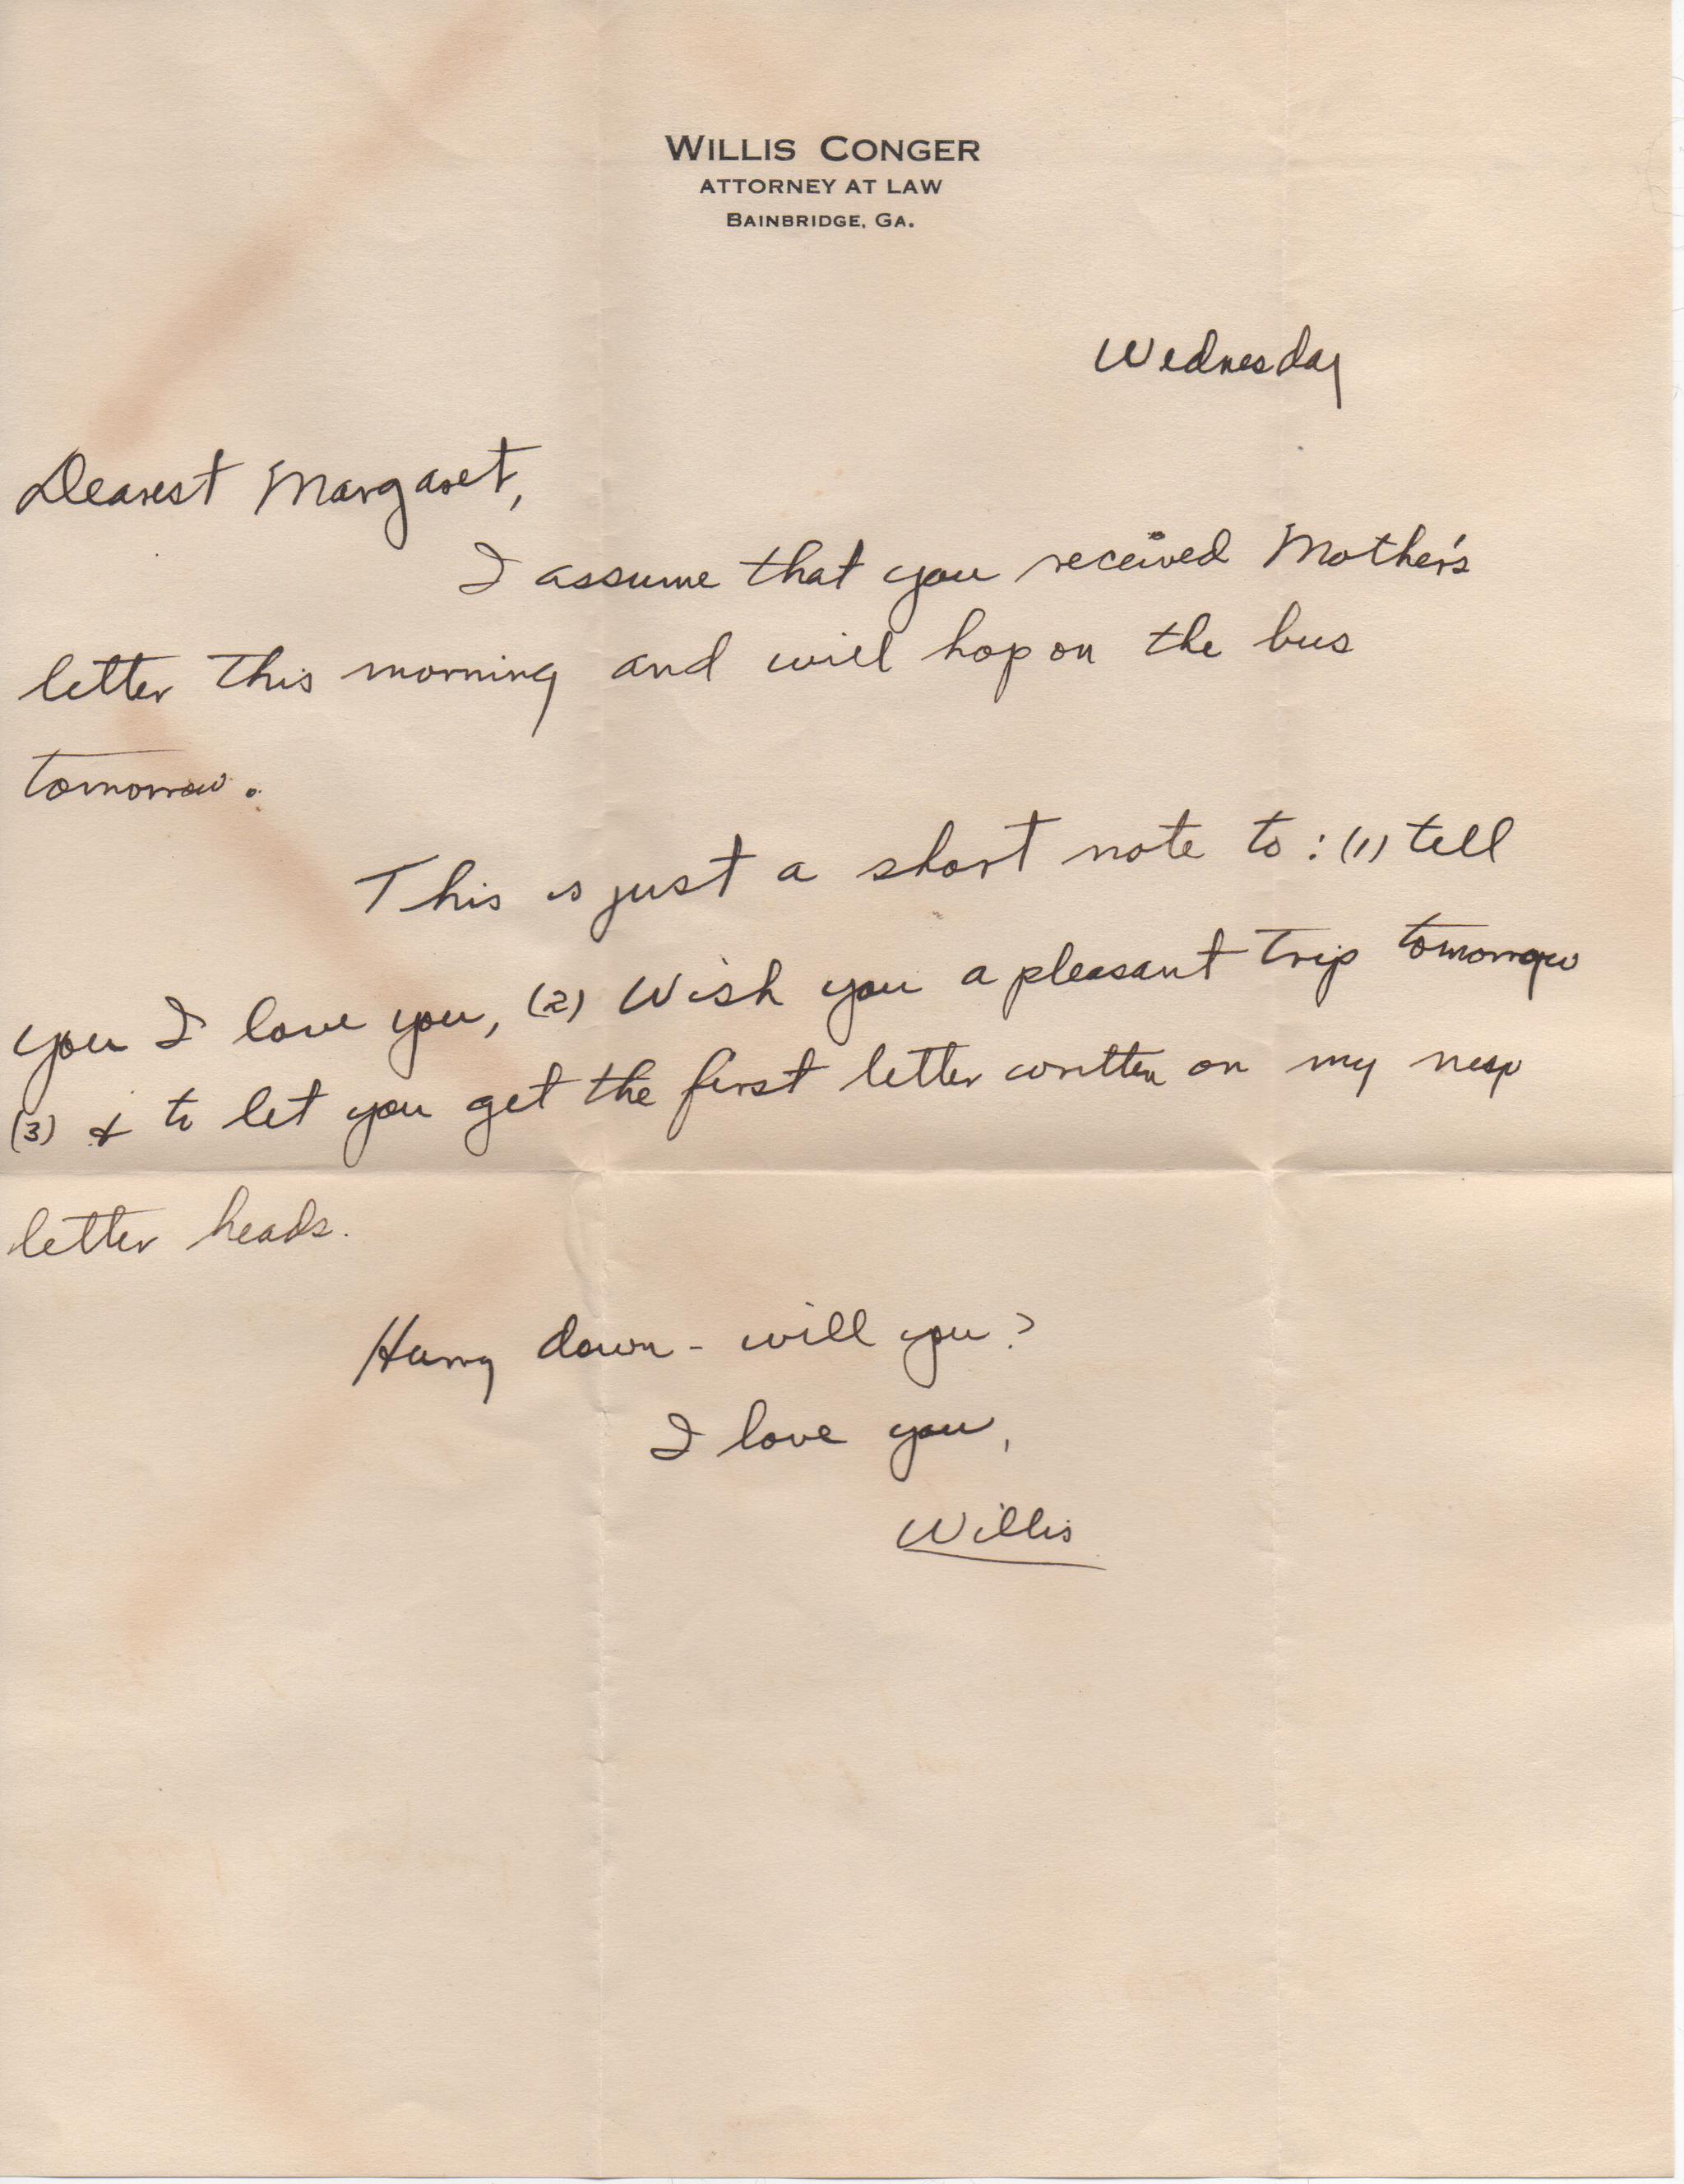 WILLIS CONGER
ATTORNEY AT LAW
BAINBRIDGE, GA.
Wednesday
Dearest Margaret,
I assume that you received Mother's
letter this morning and will hop on the bus
tomorrow.
This is just a short note to: (1) tell
you I love you, (2) Wish you a pleasant trip tomorrow
(3) & to let you get the first letter written on my new
letter heads.
Hurry down - will you?
I love you,
Willis